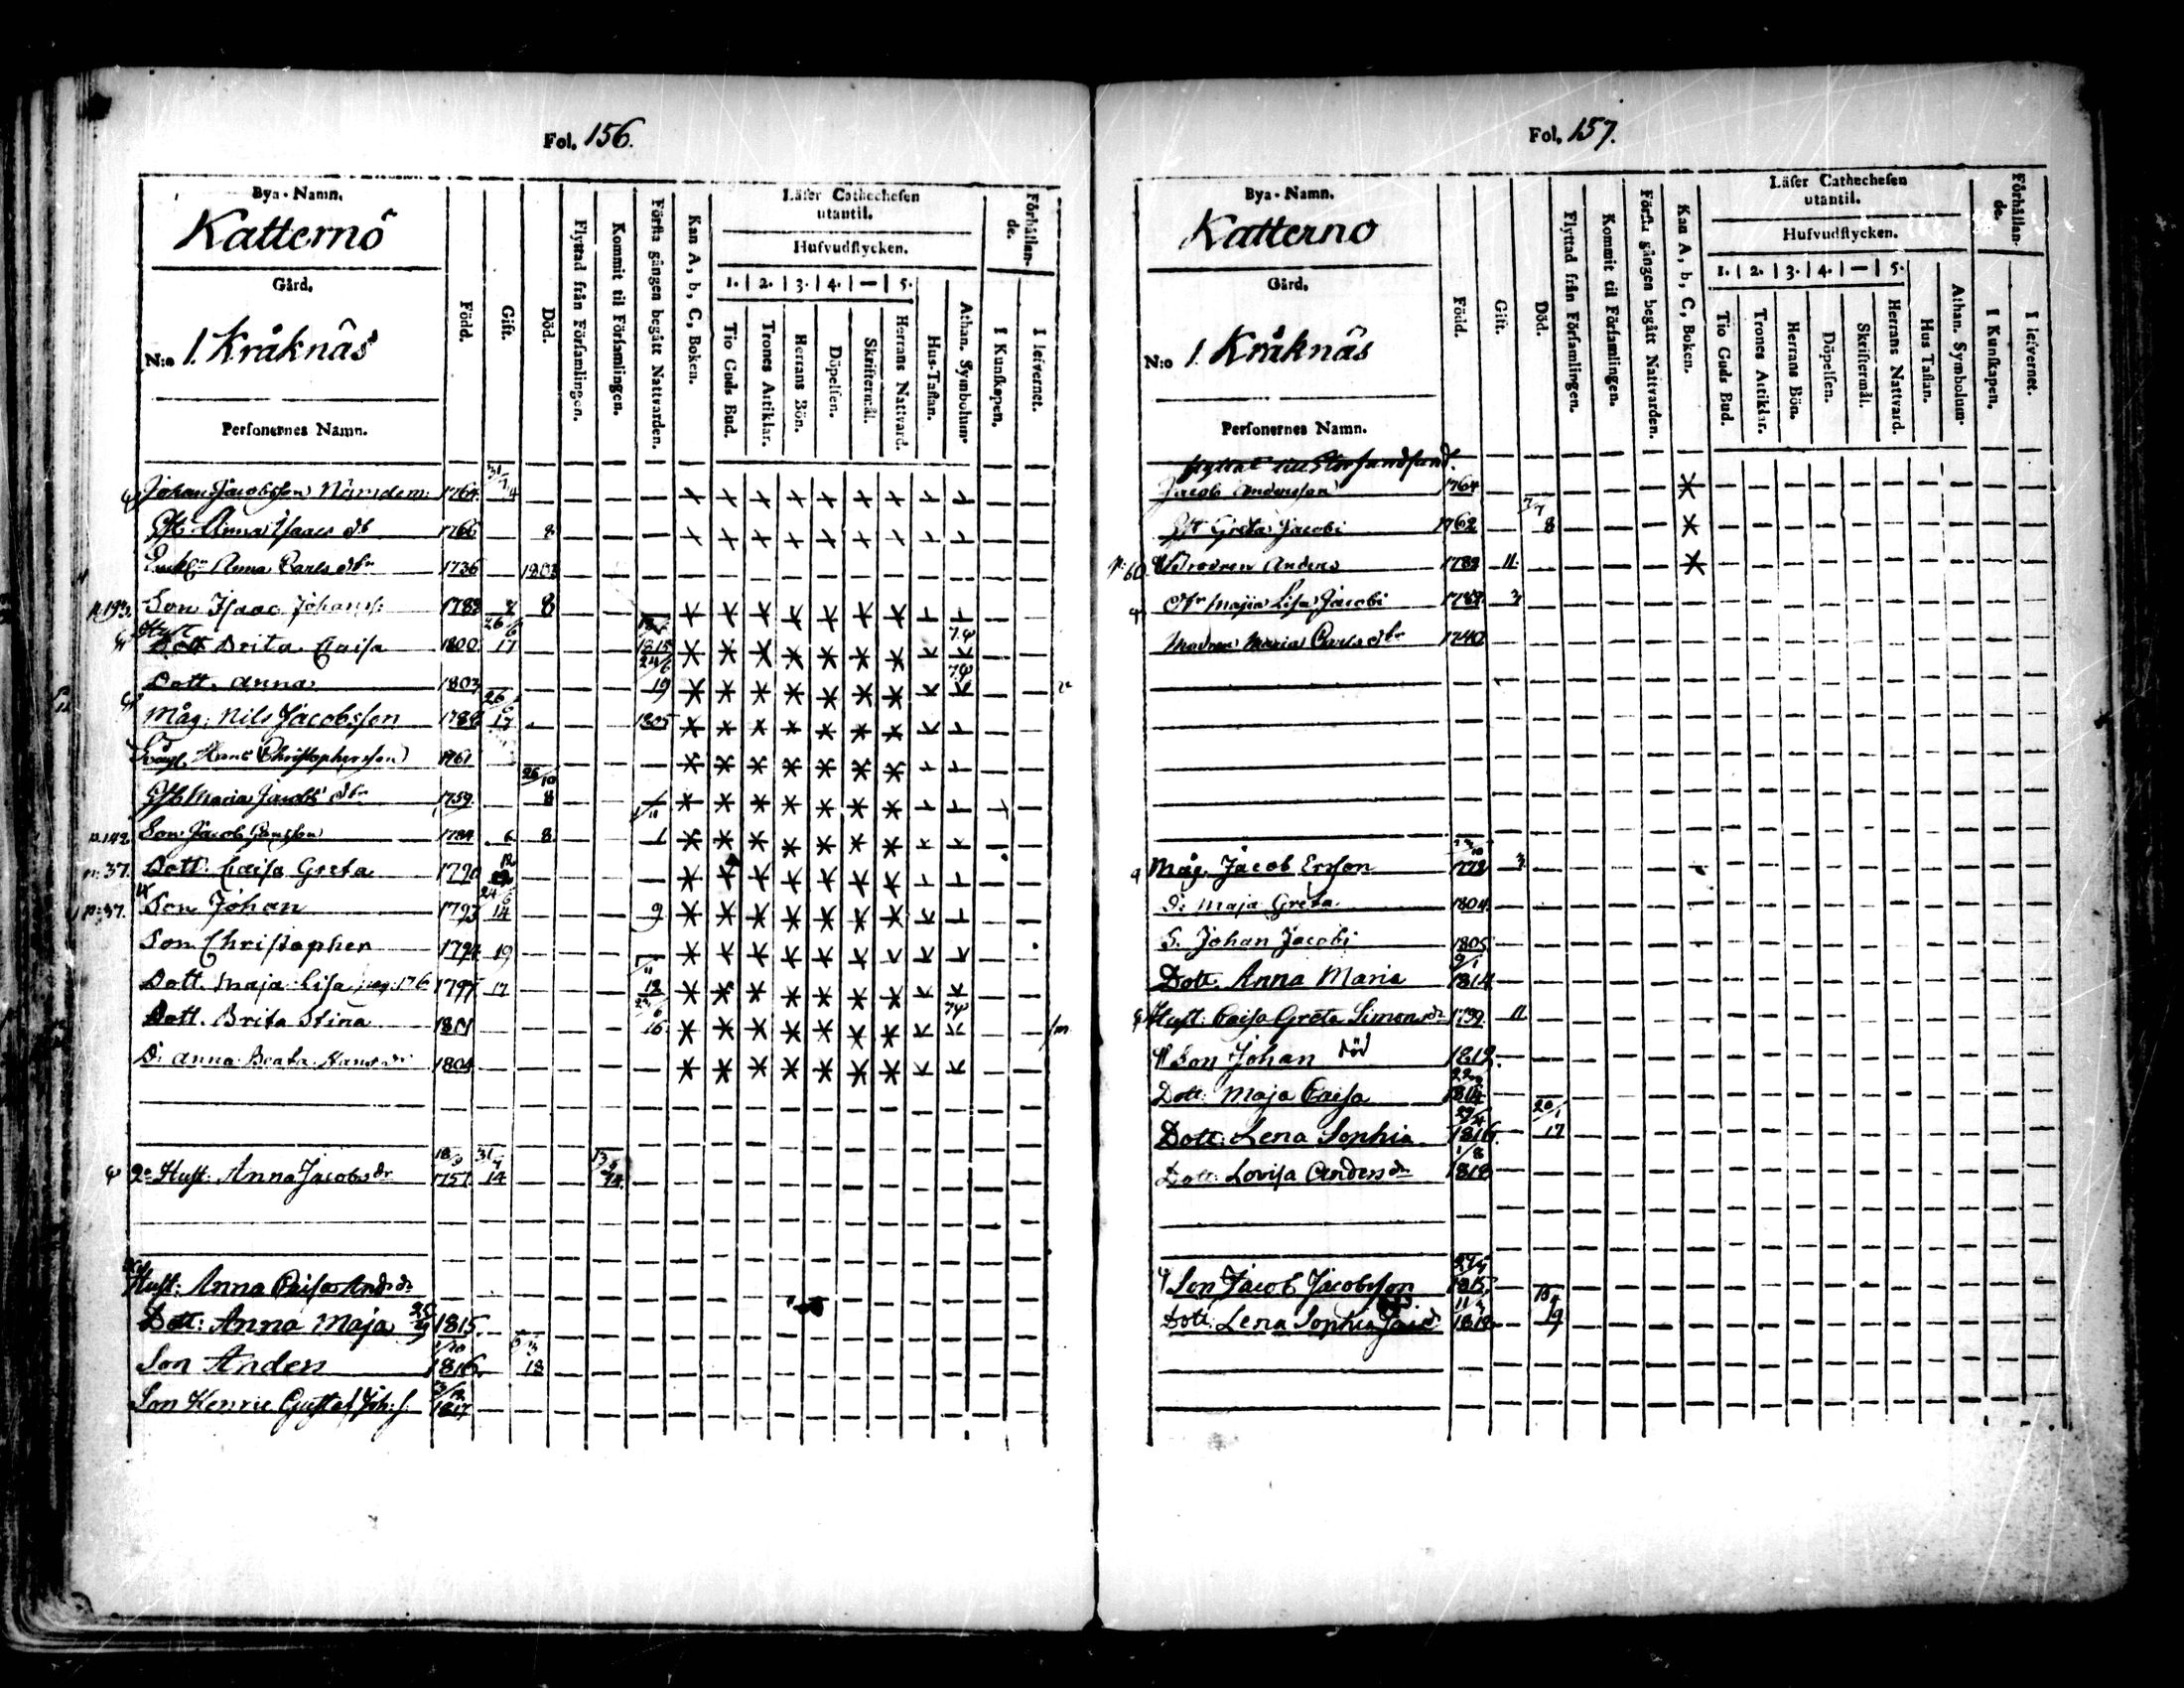 Fol. 156.
Bya-Namn.
Katternö
Gård.
N:o 1. Kråknäs
Personernes Namn.
Född.
Gift.
Död.
Flyttad från Församlingen.
Kommit til Församlingen.
Första gången begått Nattvarden.
Kan A, b, C, Boken.
Läser Cathechesen utantil.
Hufvudstycken.
1. 2. 3. 4. — 5.
Tio Guds Bud.
Trones Artiklar.
Herrans Bön.
Döpelsen.
Skriftermål.
Herrans Nattvard.
Hus-Taflan.
Athan. Symbolum.
Förhållande.
I Kunskapen.
I lefvernet.
Johan Jacobsson Nämdem: 1764 31/7 14
Hst Anna Isaacs dr 1766 8
Enk Anna Carls dr 1736 1803
p. 193. Son Isaac Johans 1788 8
Hust Brita Caisa 1800 26/6 17 1815
Dott. Anna 1803 24/6 19
Måg: Nils Jacobsson 1788 26/6 17 1805
Hans Christophersson 1761
Hst Maria Jacobs dr 1759 26/10 8
p. 142 Son Jacob Hansson 1784 6 8 1
p: 37. Dott: Caisa Greta 1790 12
p: 37. Son Johan 1793 24/6 14 9
Son Christopher 1794 19
Dott. Maja Lisa pag: 176 1797 17 12
Dott. Brita Stina 1801 16
D: Anna Beata Hans dr 1804
2:a Hust: Anna Jacobs dr 18/9 1757 31/7 14
Hust: Anna Caisa And: dr
Dott: Anna Maja 25/9 1815
Son Anders 1816 18
Son Henric Gustaf Joh: s. 1817
Fol. 157.
Bya-Namn.
Katterno
Gård.
N:o 1. Kråknäs
Personernes Namn.
Född.
Gift.
Död.
Flyttad från Församlingen.
Kommit til Församlingen.
Första gången begått Nattvarden.
Kan A, b, C, Boken.
Läser Cathechesen utantil.
Hufvudstycken.
1. 2. 3. 4. — 5.
Tio Guds Bud.
Trones Artiklar.
Herrans Bön.
Döpelsen.
Skriftermål.
Herrans Nattvard.
Hus Taflan.
Athan. Symbolum.
Förhållande.
I Kunskapen.
I lefvernet.
flyttat till Storsandsund.
Jacob Andersson 1764
Hst Greta Jacobi 1762 8
p: 60. Anders 1789 11.
Maja Lisa Jacobi 1784
Modren Maria Carls dr 1740
Måg Jacob Ersson 1772
D: Maja Greta 1804
S. Johan Jacobi 1805
Dott. Anna Maria 9/1 1814
Hust: Caisa Greta Simons dr 1789 11
Son Johan död 1812
Dott: Maja Caisa 1814
Dott: Lena Sophia 29/4 1816 20/1 17
Dott: Lovisa Anders dr 1/8 1818
Son Jacob Jacobsson 1815
Dott. Lena Sophia 1818 19